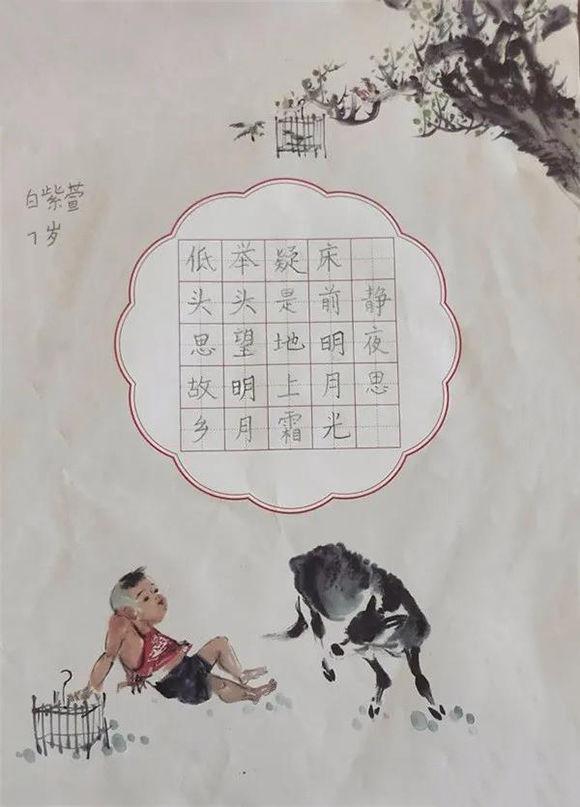 静夜思
床前明月光
疑是地上霜
举头望明月
低头思故乡
白紫萱
7岁